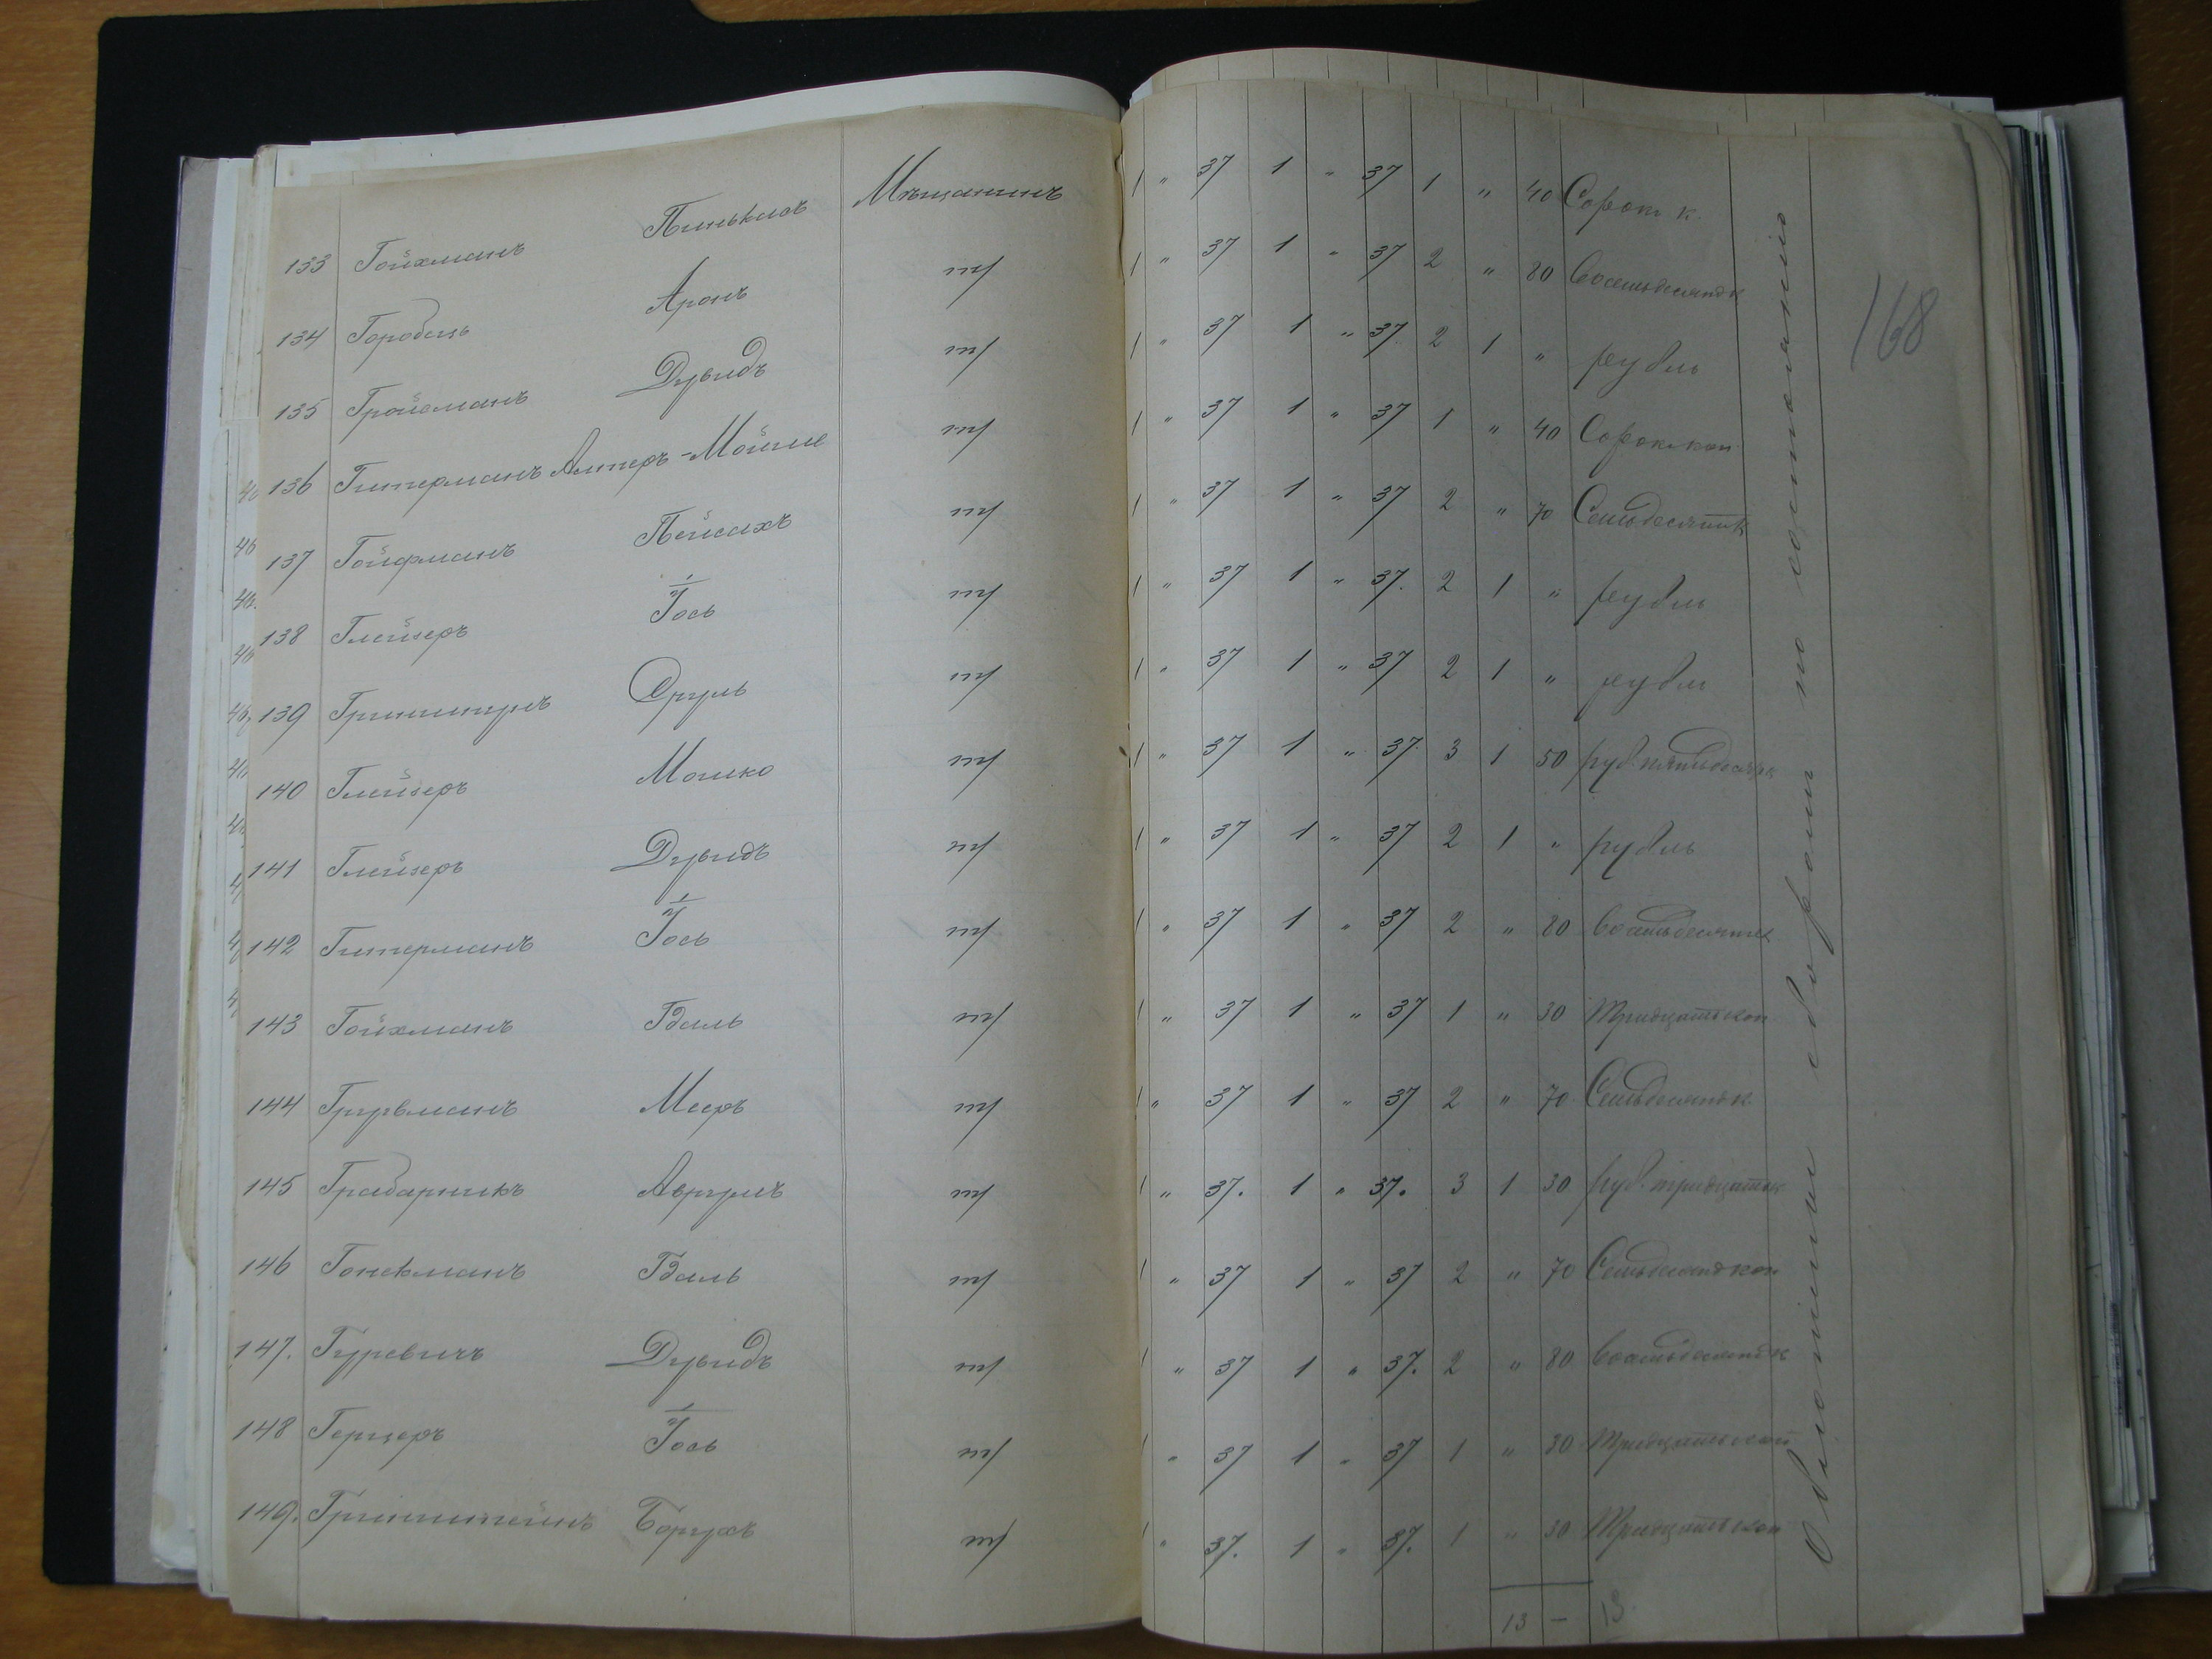 168
133 Гойхманъ Пинькасъ Мѣщанинъ 1 " 37 1 " 37 1 " 40 Сорок к.
134 Городецъ Аронъ т/ 1 " 37 1 " 37 2 " 80 Восемьдесятъ к
135 Гройсманъ Дувидъ т/ 1 " 37 1 " 37. 2 1 " рубль
136 Гитерманъ Алтеръ-Мойше т/ 1 " 37 1 " 37 1 " 40 Сорок коп
137 Гойфманъ Пейсахъ т/ 1 " 37 1 " 37 2 " 70 Семьдесятъ к
138 Глейзеръ Іось т/ 1 " 37 1 " 37. 2 1 " рубль
139 Сруль т/ 1 " 37 1 " 37 2 1 " рубль
140 Глейзеръ Мошко т/ 1 " 37 1 " 37. 3 1 50 руб. пятьдесят к
141 Глейзеръ Дувидъ т/ 1 " 37 1 " 37 2 1 " рубль
142 Гитерманъ Іось т/ 1 " 37 1 " 37 2 " 80 Восемьдесят к
143 Гойхманъ Гдаль т/ 1 " 37 1 " 37 1 " 30 Тридцать коп
144 Мееръ т/ 1 " 37 1 " 37 2 " 70 Семьдесятъ к
145 Грабарникъ Аврумъ т/ 1 " 37. 1 " 37. 3 1 30 руб. тридцать к
146 Гонекманъ Гдаль т/ 1 " 37 1 " 37 2 " 70 Семьдесятъ коп
147. Гуревичъ Дувидъ т/ " 37 1 " 37. 2 " 80 Восемьдесятъ к
148 Герцеръ Іось т/ " 37 1 " 37 1 " 30 Тридцать коп
149. Гринштейнъ Борухъ т/ " 37. 1 " 37. 1 " 30 Тридцать коп
13 – 13
сборами по состоянію